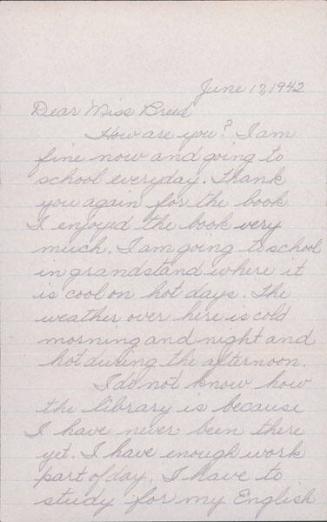 June 13, 1942
Dear Miss Breed
How are you? I am
fine now and going to
school everyday. Thank
you again for the book
I enjoyed the book very
much. I am going to school
in grandstand where it
is cool on hot days. The
weather over here is cold
morning and night and
hot during the afternoon.
I do not know how
the library is because
I have never been there
yet. I have enough work
part of day. I have to
study for my English